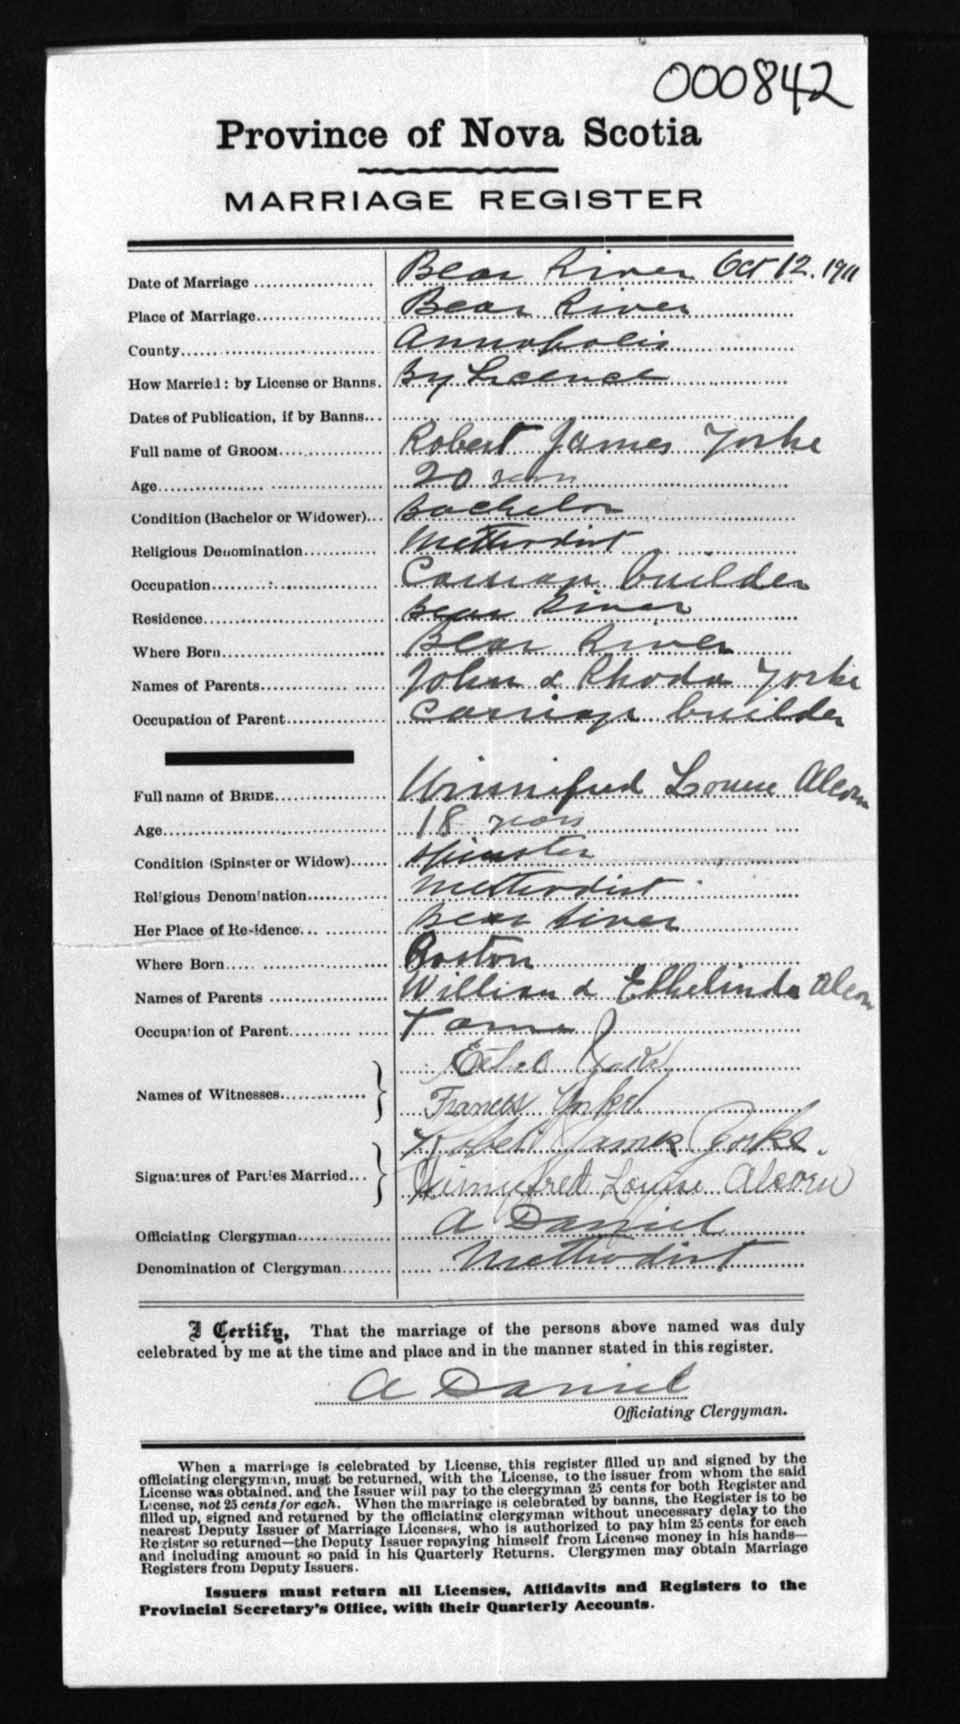 000842
Province of Nova Scotia
MARRIAGE REGISTER
Date of Marriage Bear River Oct 12. 1911
Place of Marriage Bear River
County Annapolis
How Married: by License or Banns. By Licence
Dates of Publication, if by Banns
Full name of GROOM Robert James Yorke
Age 20 years
Condition (Bachelor or Widower) Bachelor
Religious Denomination Methodist
Occupation Carriage builder
Residence Bear River
Where Born Bear River
Names of Parents John & Rhoda Yorke
Occupation of Parent Carriage builder
Full name of BRIDE Winnifred Louise Alcorn
Age 18 years
Condition (Spinster or Widow) Spinster
Religious Denomination Methodist
Her Place of Residence Bear River
Where Born Boston
Names of Parents William & Ethelinda Alcorn
Occupation of Parent
Names of Witnesses
Frances Yorke
Signatures of Parties Married Robert James Yorke.
Winnifred Louise Alcorn
Officiating Clergyman A Daniel
Denomination of Clergyman Methodist
I Certify, That the marriage of the persons above named was duly
celebrated by me at the time and place and in the manner stated in this register.
A Daniel
Officiating Clergyman.
When a marriage is celebrated by License, this register filled up and signed by the
officiating clergyman, must be returned, with the License, to the issuer from whom the said
License was obtained, and the Issuer will pay to the clergyman 25 cents for both Register and
License, not 25 cents for each. When the marriage is celebrated by banns, the Register is to be
filled up, signed and returned by the officiating clergyman without unecessary delay to the
nearest Deputy Issuer of Marriage Licenses, who is authorized to pay him 25 cents for each
Register so returned—the Deputy Issuer repaying himself from License money in his hands—
and including amount so paid in his Quarterly Returns. Clergymen may obtain Marriage
Registers from Deputy Issuers.
Issuers must return all Licenses, Affidavits and Registers to the
Provincial Secretary's Office, with their Quarterly Accounts.